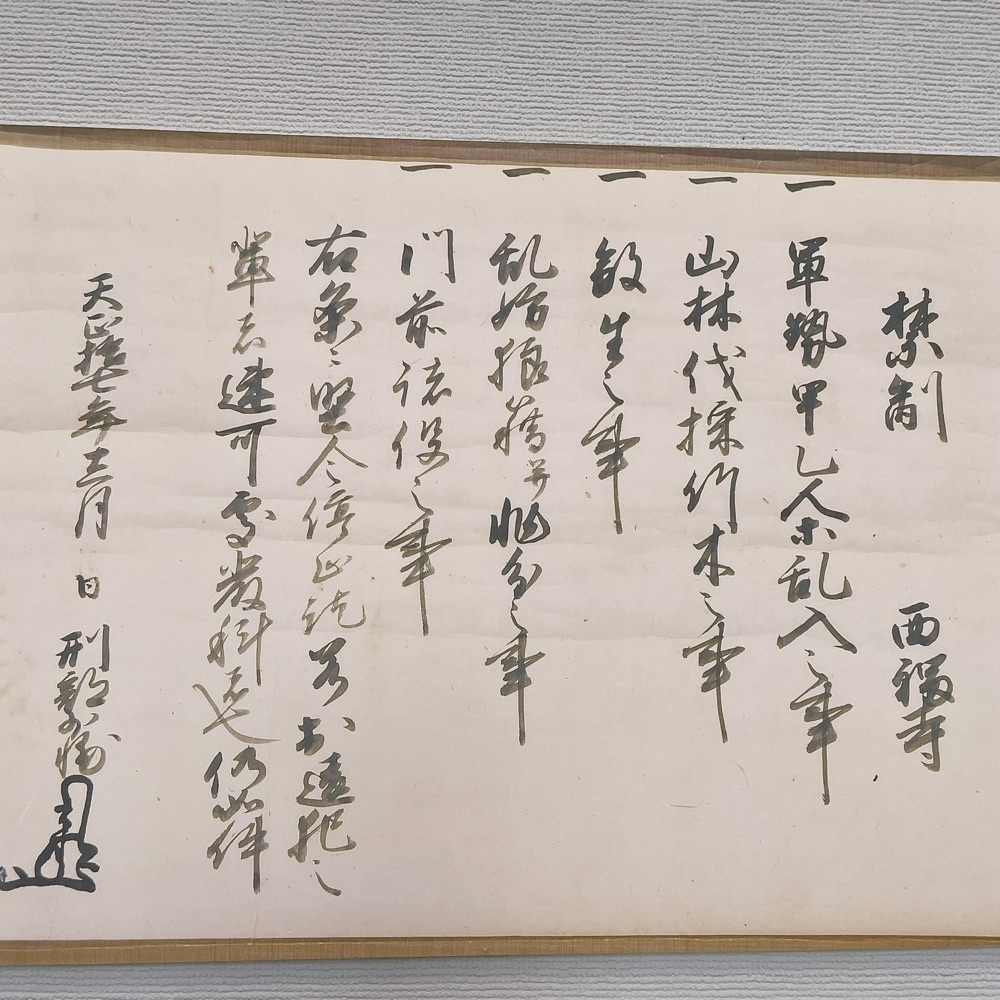 禁制 西福寺
一 軍勢甲乙人等乱入之事
一 山林伐採竹木之事
一 殺生之事
一 乱妨狼藉并非分之事
一 門前諸役之事
右条々堅令停止訖若於違犯之
輩者速可處厳科者也仍如件
天正拾七年十二月 日 刑部少輔